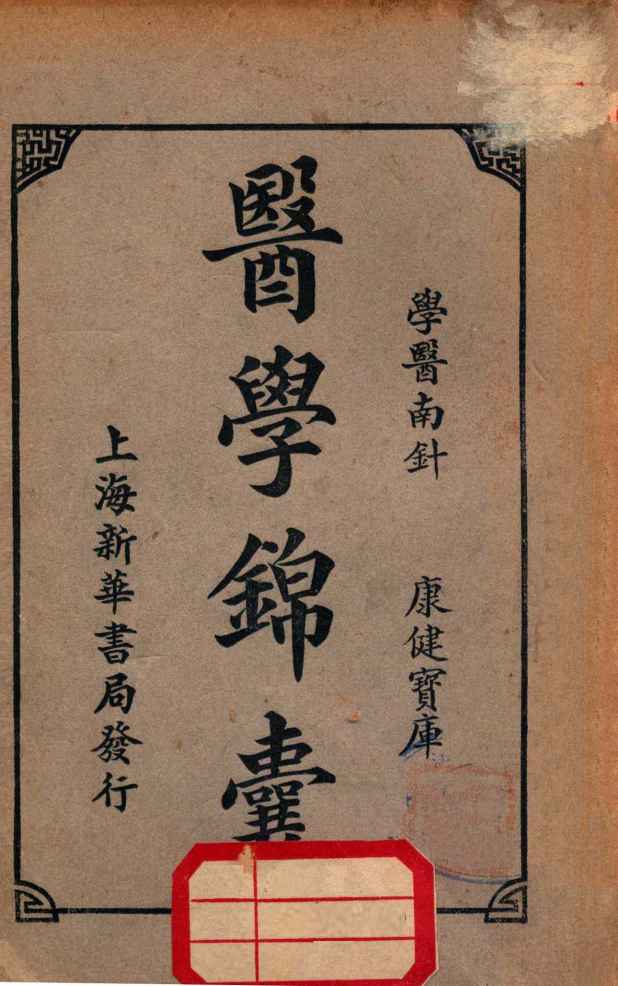 學醫南針 康健寳庫
醫學錦囊
上海新華書局發行